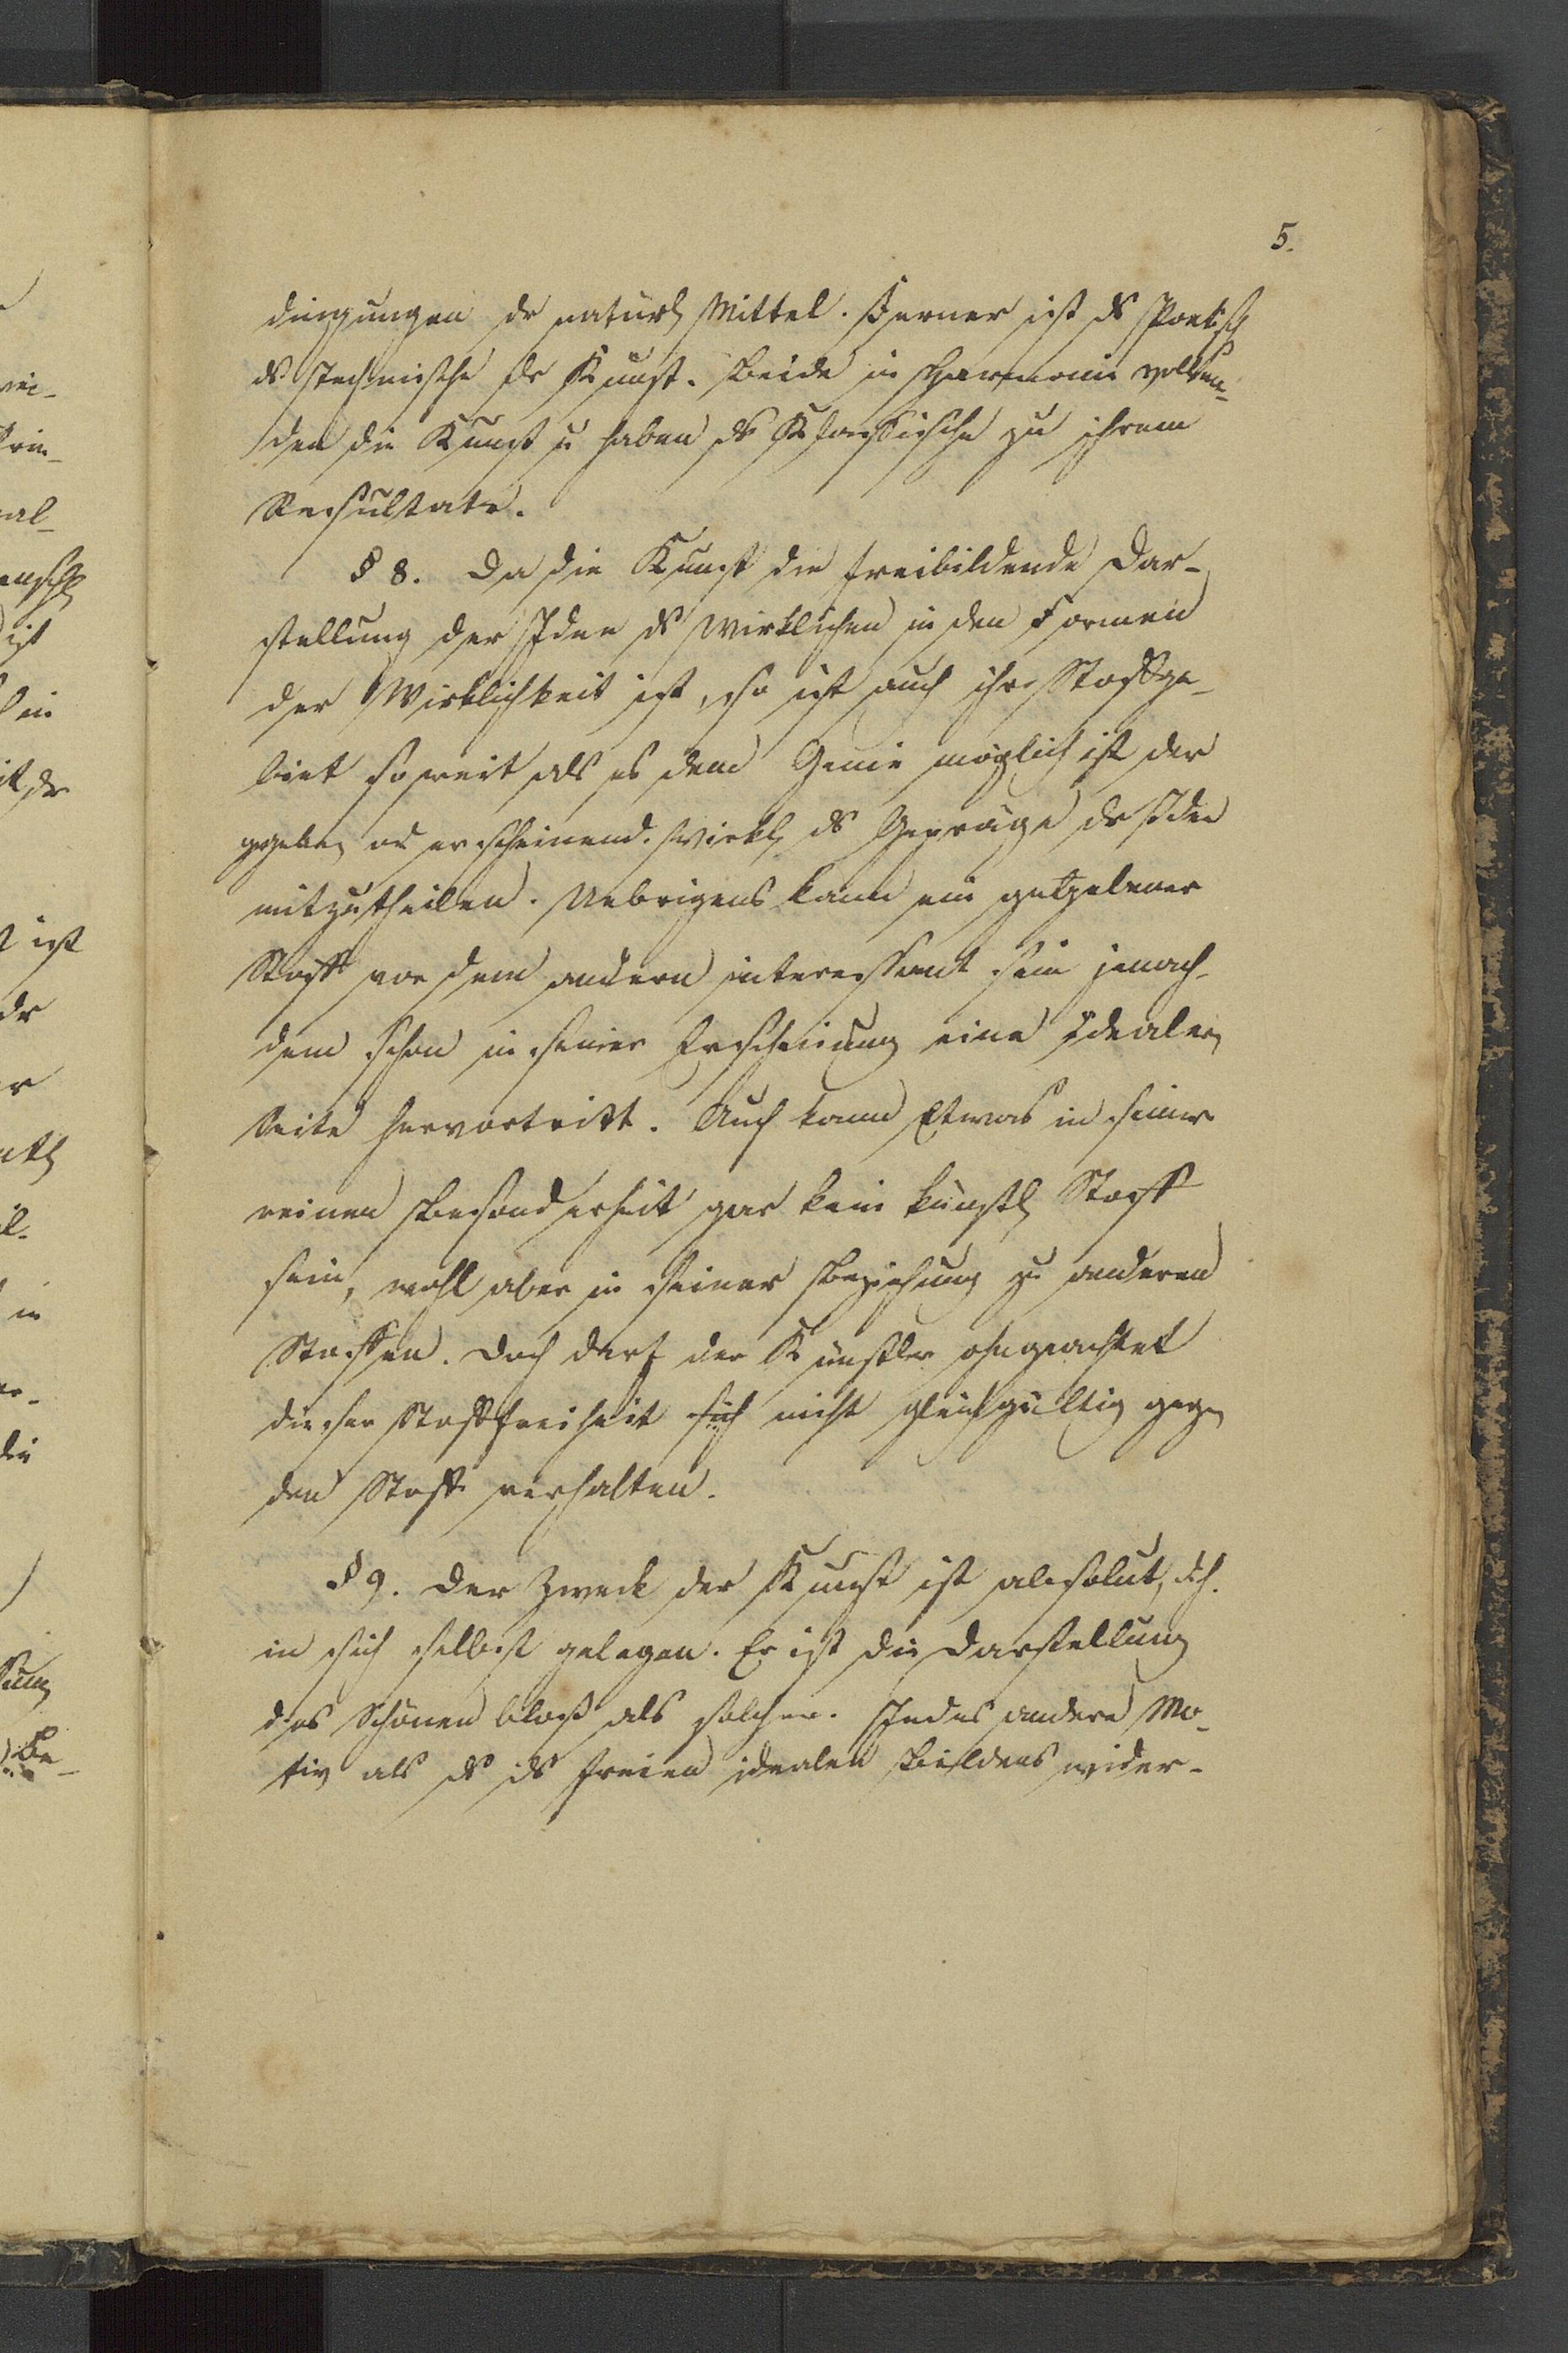 5.
dingungen dr natürl Mittel. Ferner ist ds Poetisch
ds Technische dr Kunst. Beide in Harmonie vollen-
den die Kunst u haben ds Klassische zu ihrem
Resultate.
§ 8. Da die Kunst die freibildende Dar-
stellung der Idee ds Wirklichen in den Formen
der Wirklichkeit ist, so ist auch ihr Stoffge-
biet so weit als es dem Genie möglich ist der
gegeben od erscheinend. Wirkl ds Gepräge dr Idee
mitzutheilen. Uebrigens kann ein gegebener
Stoff vor dem andern interessant sein jenach-
dem schon in seiner Erscheinung eine Idealen
Seite hervortritt. Auch kann Etwas in seiner
reinen Besonderheit gar kein künstl Stoff
sein, wohl aber in seiner Beziehung zu anderen
Stoffen. Doch darf der Künstler ohngeachtet
dieser Stofffreiheit sich nicht gleichgültig gegen
den Stoff verhalten.
§ 9. Der Zweck der Kunst ist absolut, dh.
in sich selbst gelegen. Er ist die Darstellung
des Schönen bloß als solchen. Jedes andere Mo-
tiv als ds ds freien idealen Bildens wider-